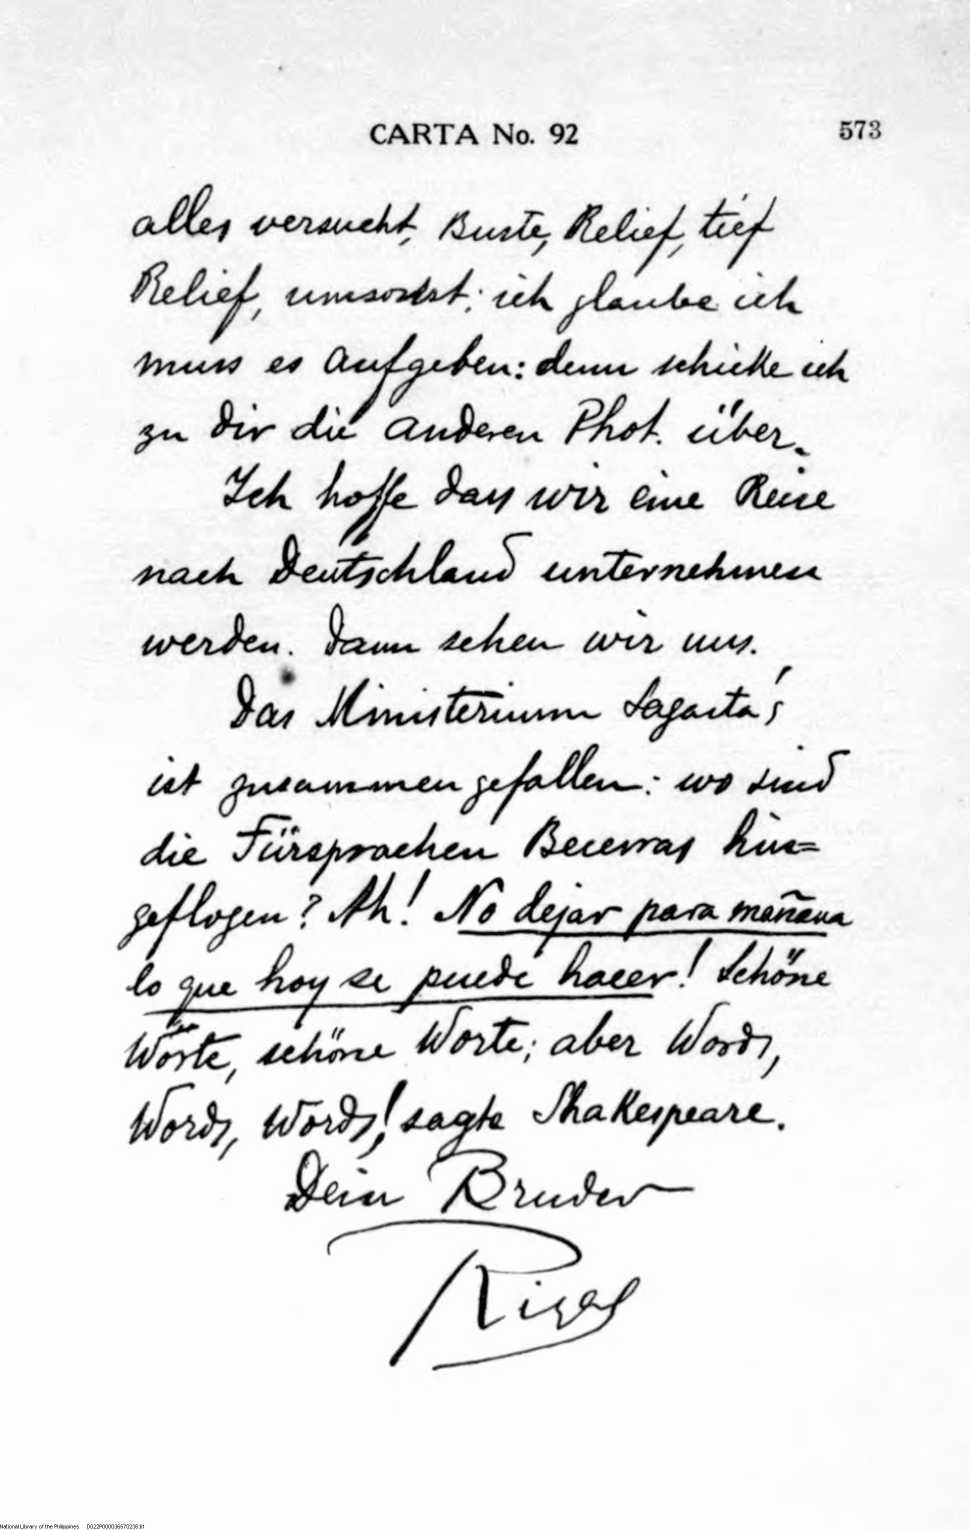 CARTA No. 92 573
alles versucht, Buste, Relief, tief
Relief, umsonst; ich glaube ich
muss es aufgeben: denn schicke ich
zu Dir die anderen Phot. über.
Ich hoffe dass wir eine Reise
nach Deutschland unternehmen
werden. Dann sehen wir uns.
Das Ministerium Sagasta's
ist zusammengefallen: wo sind
die Fürsprachen Becerras hin=
geflogen? Ah! No dejar para mañana
lo que hoy se puede hacer! Schöne
Wörte, schöne Worte; aber Words,
Words, Words! sagte Shakespeare.
Dein Bruder
Rizal
National Library of the Philippines